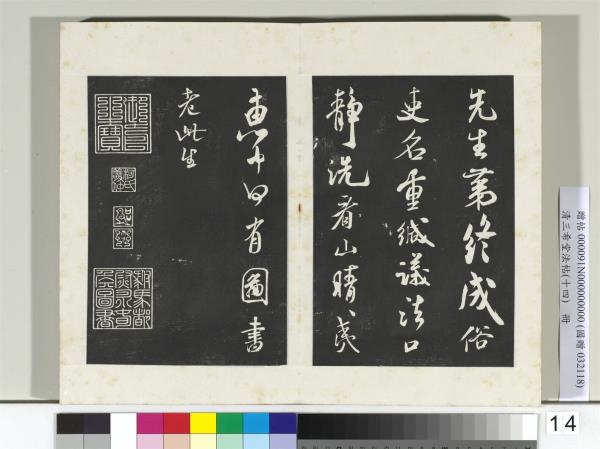 先生終成俗
吏名重緘議法口
靜洗看山晴夷
惠中何有圖書
老此生
贈帖 000091N000000000 (國贈 032118)
清三希堂法帖(十四) 冊
14